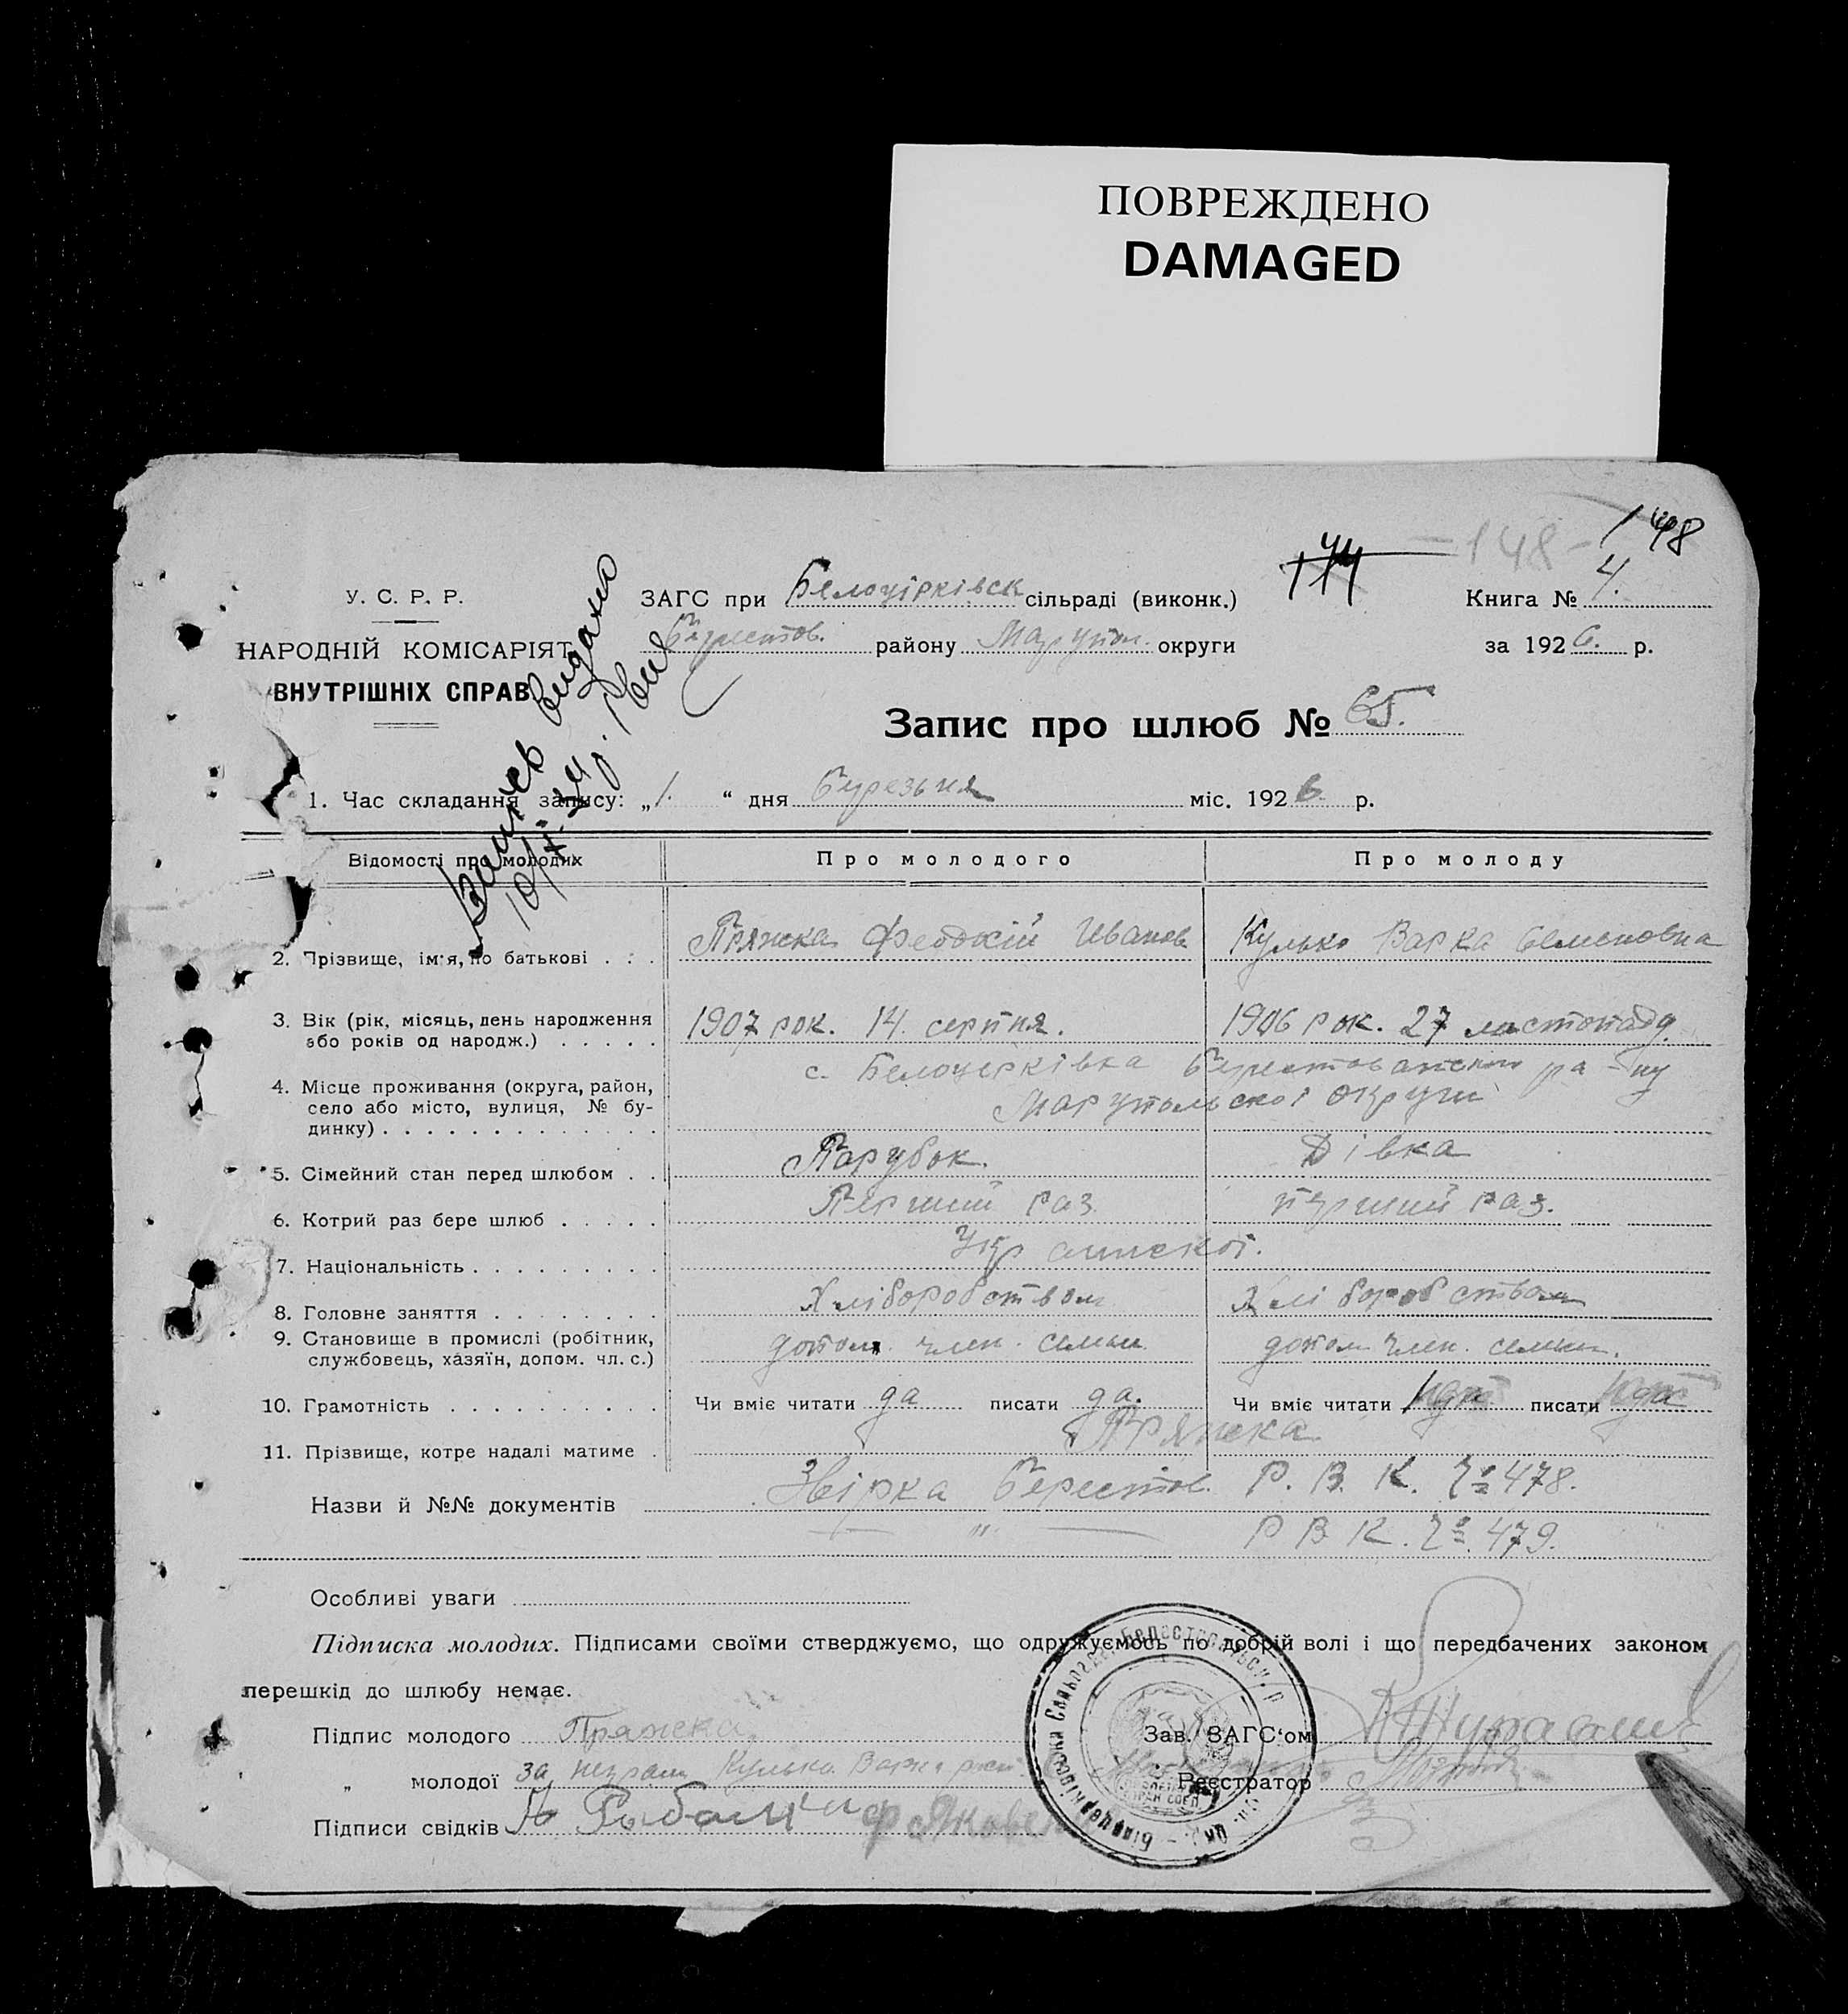 ПОВРЕЖДЕНО
DAMAGED
148
-148-
174
У. С. Р. Р.
НАРОДНІЙ КОМІСАРІЯТ
ВНУТРІШНІХ СПРАВ
ЗАГС при Белоцірківск сільраді (виконк.)
Берестов. района Марупол. округи
Книга № 4.
за 1926. р.
Запис про шлюб № 65.
видано
1. Час складання запису: „1. “ дня березня міс. 1926 р.
Відомості про молодих
Про молодого
Про молоду
2. Прізвище, ім'я, по батькові . . . Пряжка Феодкій Иванов Кулько Варка Семеновна
3. Вік (рік, місяць, день народження або років од народж.) . . . . . 1907 рок. 14. серпня. 1906 рок. 27 листопаду.
4. Місце проживання (округа, район, село або місто, вулиця, № будинку) . . . . . с. Белоцерківка Берестованского ра-ну
Марупольскої округи
5. Сімейний стан перед шлюбом . . Парубок. Дівка
6. Котрий раз бере шлюб . . . . . Перший раз першии раз.
7. Національність . . . . . . . . . Украинскої.
8. Головне заняття . . . . . . . . Хліборобством Хліборобством
9. Становище в промислі (робітник, службовець, хазяїн, допом. чл. с.) допом. член. семьи допом член. семьи.
10. Грамотність . . . . . . . . . . Чи вміє читати да писати да. Чи вміє читати писати
11. Прізвище, котре надалі матиме . Пряжка
Назви й №№ документів Звірка Берестов. Р. В. К. № 478.
— " — Р В К. № 479.
Особливі уваги
Підписка молодих. Підписами своїми стверджуємо, що одружуємось по добрій волі і що передбачених законом
перешкід до шлюбу немає.
Підпис молодого Пряжка
„ молодої за неграм Кулько Варка
Підписи свідків Рыбалка Ф Яковен
Зав. ЗАГС'ом
Реєстратор